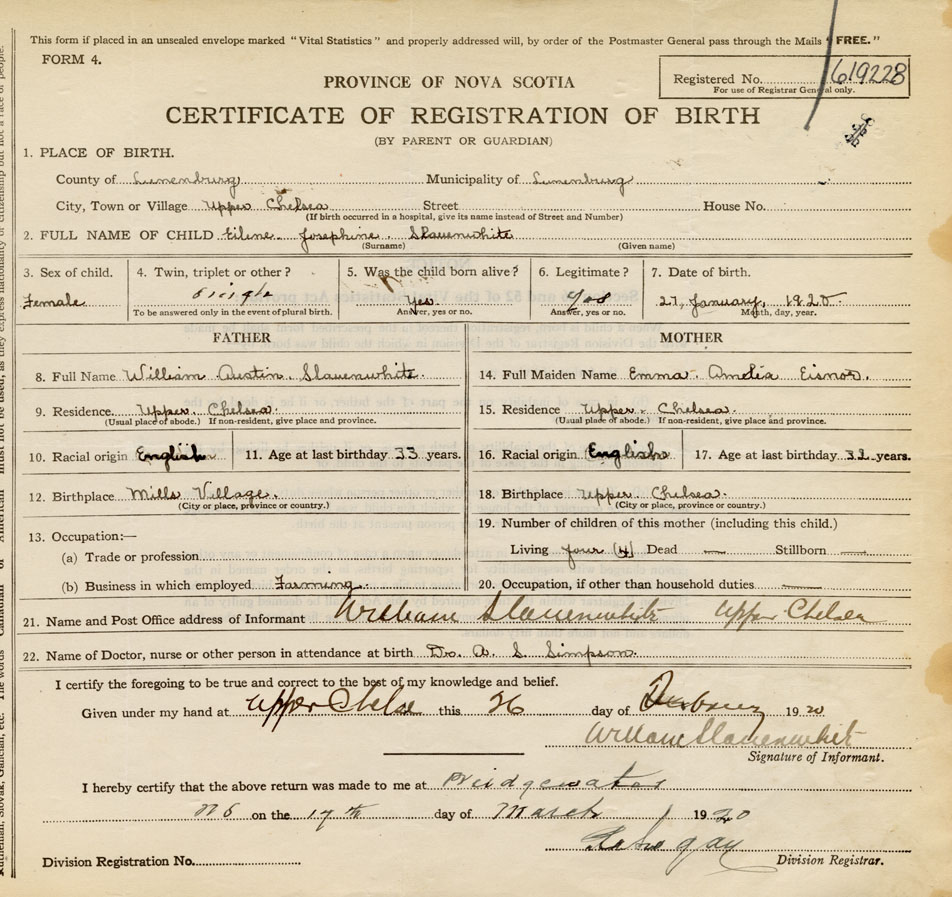 This form if placed in an unsealed envelope marked "Vital Statistics" and properly addressed will, by order of the Postmaster General pass through the Mails "FREE."
FORM 4.
PROVINCE OF NOVA SCOTIA
Registered No. 619228
For use of Registrar General only.
CERTIFICATE OF REGISTRATION OF BIRTH
(BY PARENT OR GUARDIAN)
1. PLACE OF BIRTH.
County of Lunenburg Municipality of Lunenburg
City, Town or Village Upper Chelsea Street House No.
(If birth occurred in a hospital, give its name instead of Street and Number)
2. FULL NAME OF CHILD Eilene Josephine Slauenwhite
(Surname) (Given name)
3. Sex of child. 4. Twin, triplet or other? 5. Was the child born alive? 6. Legitimate? 7. Date of birth.
Female Single Yes. Yes 27, January, 1920.
To be answered only in the event of plural birth. Answer, yes or no. Answer, yes or no. Month, day, year.
FATHER MOTHER
8. Full Name William Austin Slauenwhite. 14. Full Maiden Name Emma Amelia Eisnor.
9. Residence Upper Chelsea. 15. Residence Upper Chelsea.
(Usual place of abode.) If non-resident, give place and province. (Usual place of abode.) If non-resident, give place and province.
10. Racial origin English 11. Age at last birthday 33 years. 16. Racial origin English 17. Age at last birthday 32 years.
12. Birthplace Mills Village. 18. Birthplace Upper Chelsea.
(City or place, province or country.) (City or place, province or country.)
13. Occupation:— 19. Number of children of this mother (including this child.)
(a) Trade or profession Living four (4) Dead — Stillborn —
(b) Business in which employed Farming. 20. Occupation, if other than household duties —
21. Name and Post Office address of Informant William Slauenwhite Upper Chelsea
22. Name of Doctor, nurse or other person in attendance at birth Dr. A. S. Simpson.
I certify the foregoing to be true and correct to the best of my knowledge and belief.
Given under my hand at Upper Chelse this 26 day of 1920
William Slauenwhite
Signature of Informant.
I hereby certify that the above return was made to me at Bridgewater
NS on the 17th day of March 1920
Division Registration No. Division Registrar.